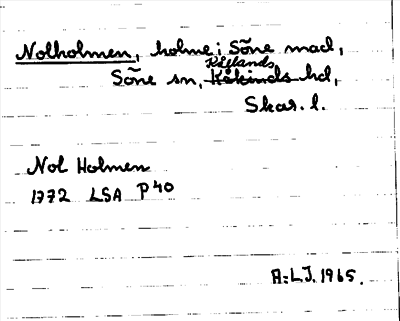 Nolholmen, holme i Sōne mad,
Kållands
Sōne sn, Kåkinds hd,
Skar. l.
Nol Holmen
1772 LSA P40
A:L.J. 1965.